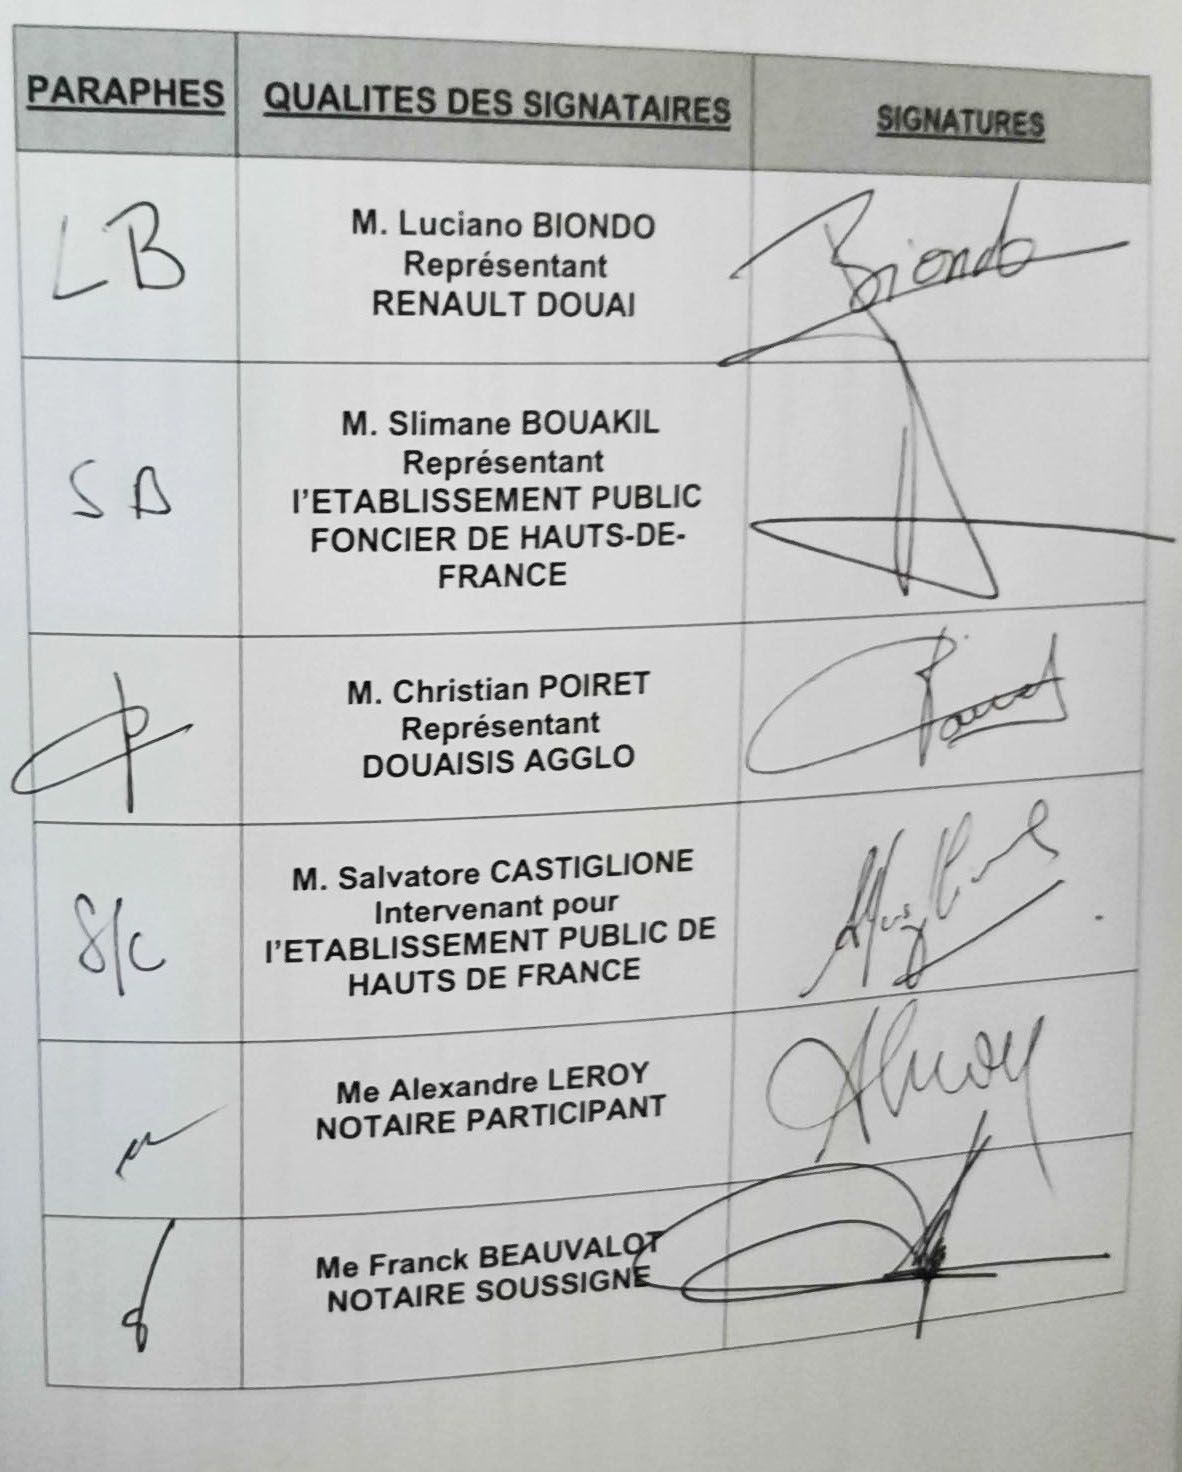 PARAPHES QUALITES DES SIGNATAIRES SIGNATURES
LB
M. Luciano BIONDO
Représentant
RENAULT DOUAI
Biondo
M. Slimane BOUAKIL
Représentant
l'ETABLISSEMENT PUBLIC
FONCIER DE HAUTS-DE-
FRANCE
M. Christian POIRET
Représentant
DOUAISIS AGGLO
S/C
M. Salvatore CASTIGLIONE
Intervenant pour
l'ETABLISSEMENT PUBLIC DE
HAUTS DE FRANCE
Me Alexandre LEROY
NOTAIRE PARTICIPANT
Me Franck BEAUVALOT
NOTAIRE SOUSSIGNE